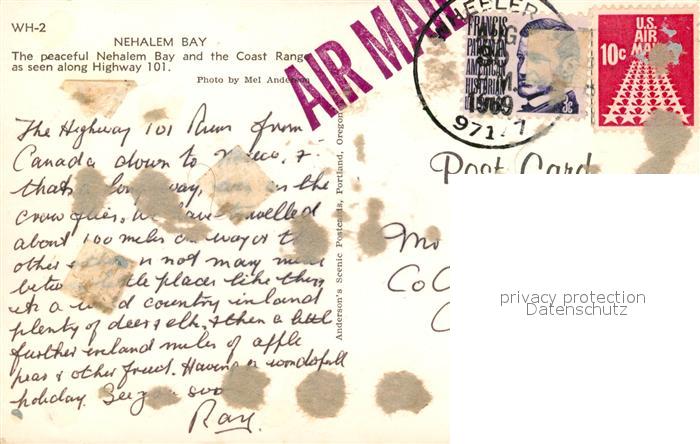 WH-2
NEHALEM BAY
The peaceful Nehalem Bay and the Coast Range
as seen along Highway 101.
Photo by Mel Anderson
AIR MAIL
WHEELER
AUG
1969
97147
FRANCIS
PARKMAN
AMERICAN
HISTORIAN
3c
U.S.
AIR
MAIL
10c
Post Card
Anderson's Scenic Postcards, Portland, Oregon
The Highway 101 Runs from
Canada down to
thats a long way, as the
crow flies. We have travelled
about 100 miles one way or the
other not many more
little places like them
its a wild country inland
plenty of deer & elk. & then a little
further inland miles of apple
pear & other fruit. Having a wonderfull
holiday. See you soon
Ray.
Mo
CoC
privacy protection
Datenschutz